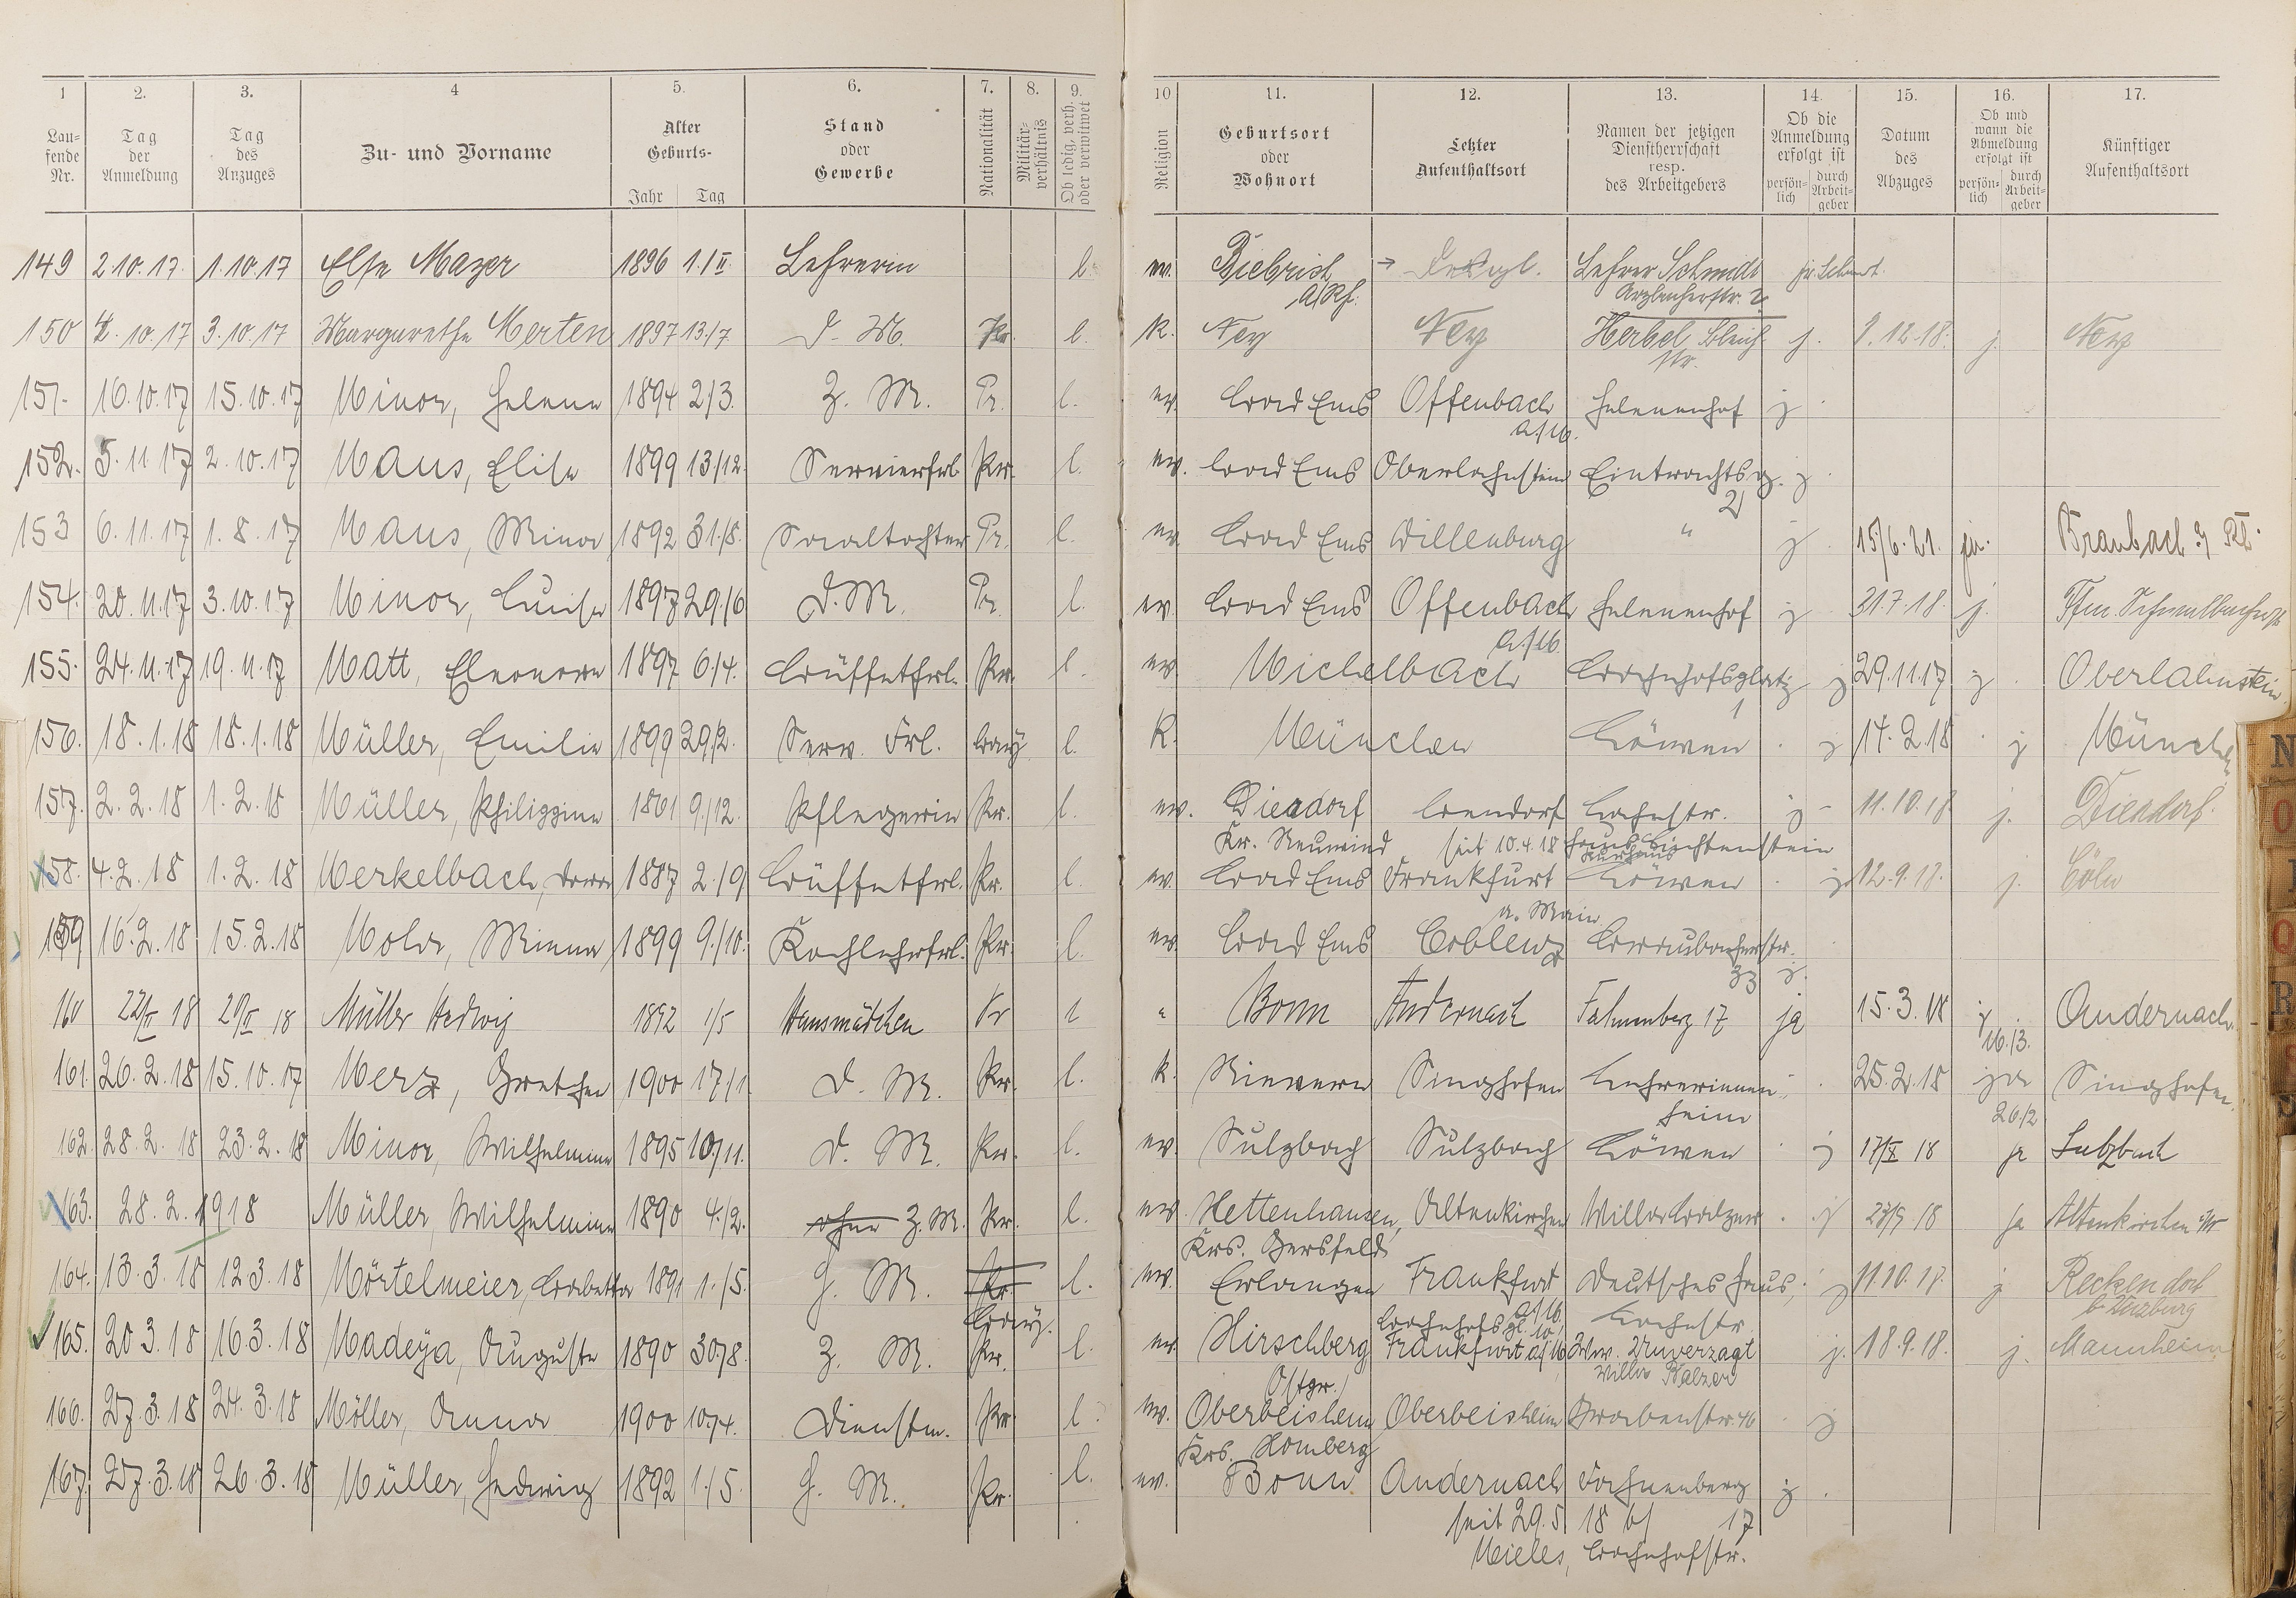 1 2. 3. 4 5. 6. 7. 8. 9. 10 11. 12. 13. 14. 15. 16. 17.
Lau-fende Nr. Tag der Anmeldung Tag des Anzuges Zu- und Vorname Alter Geburts- Jahr Tag Stand oder Gewerbe Nationalität Militär-verhältnis Ob ledig, verh. oder verwitwet Religion Geburtsort oder Wohnort Letzter Aufenthaltsort Namen der jetzigen Dienstherrschaft resp. des Arbeitgebers Ob die Anmeldung erfolgt ist persön-lich durch Arbeit-geber Datum des Abzuges Ob und wann die Abmeldung erfolgt ist persön-lich durch Arbeit-geber Künftiger Aufenthaltsort
149 2 10. 17. 1. 10. 17 Else Mayer 1896 1./II. Lehrerin l. ev. Biebrich Desgl. Lehrer Schmidt
a/Rh. Arzbacherstr. 2
150 4. 10. 17 3. 10. 17 Margarethe Merten 1897 13/7 D. M. Pr. l. K. Ney Ney Herbel, Bleich- j. 9. 12. 18. j. Ney
str.
151. 16. 10. 17 15. 10. 17 Minor, Helene 1894 2/3. Z. M. Pr. l. ev. Bad Ems Offenbach Helenenhof j
a./M.
152. 5. 11. 17 2. 10. 17 Maus, Elise 1899 13/12. Servierfrl. Pr. l. ev. Bad Ems Oberlahnstein Eintrachtsg. j.
2
153 6. 11. 17 1. 8. 17 Maus, Mina 1892 31./8. Haustochter Pr. l. ev. Bad Ems Dillenburg " j 15/6. 21. ja. Braubach a/ Rh.
154. 20. 11. 17 3. 10. 17 Minor, Luise 1897 29./6 D. M. Pr. l. ev. Bad Ems Offenbach Helenenhof j 31. 7. 18. j.
a./M.
155. 24. 11. 17 19. 11. 17 Matt, Eleonore 1897 6./4. Büffetfrl. Pr. l. ev. Michelbach Bahnhofsplatz j 29. 11. 17 j. Oberlahnstein
1
156. 18. 1. 18 18. 1. 18 Müller, Emilie 1899 29./2. Serv. Frl. Bay. l. K. München Löwen j 14. 2. 18 j München
157. 2. 2. 18 1. 2. 18 Müller, Philippine 1861 9./12. Pflegerin Pr. l. ev. Dierdorf Bendorf Bahnstr. j 11. 10. 18 j. Dierdorf.
Kr. Neuwied seit 10. 4. 18 Haus Lichtenstein
158. 4. 2. 18 1. 2. 18 Merkelbach, Dora 1887 2./9 Büffetfrl. Pr. l. ev. Bad Ems Frankfurt Kurhaus Löwen j 12. 9. 18. j. Cöln
a. Main
159 16. 2. 18 15. 2. 18 Mola, Minna 1899 9./10. Kochlehrfrl. Pr. l. ev. Bad Ems Coblenz Braubacherstr.
33 j.
160 22/II 18 20/II 18 Müller Hedwig 1892 1/5 Hausmädchen Pr l " Bonn Andernach Fahnenberg 17 ja 15. 3. 18 j. Andernach.
16./3.
161. 26. 2. 18 15. 10. 17 Merz, Gretchen 1900 17./1. D. M. Pr. l. K. Nievern Singhofen Lehrerinnen- 25. 2. 18 ja Singhofen.
heim 26/2
162. 28. 2. 18 23. 2. 18 Minor, Wilhelmine 1895 10./11. D. M. Pr. l. ev. Sulzbach Sulzbach Löwen j 17/X 18 ja Sulzbach
163. 28. 2. 1918 Müller, Wilhelmine 1890 4./2. ohne Z. M. Pr. l. ev. Hettenhausen, Altenkirchen Villa Balzer j 23/9 18 ja Altenkirchen
Krs. Gersfeld
164. 13. 3. 18 12 3. 18 Mörtelmeier, Babetta 1891 1./5. H. M. Pr. l. ev. Erlangen Frankfurt Deutsches Haus, j 11. 10. 17. j Reckendorf
Bay. a/M. Bahnstr.
165. 20 3. 18 16 3. 18 Madeya, Auguste 1890 30./8. Z. M. Pr. l. ev. Hirschberg Bahnhofspl. 10, Frankfurt a/M Ww. Unverzagt j. 18. 9. 18. j. Mannheim
Ostpr. Villa Balzer
166. 27. 3. 18 24. 3. 18 Möller, Anna 1900 10./4. Dienstm. Pr l. ev. Oberbeisheim Oberbeisheim Grabenstr. 46 j
Krs. Homberg
167. 27. 3. 18 26. 3. 18 Müller, Hedwig 1892 1./5. H. M. Pr. l. ev. Bonn Andernach Fahnenberg j.
seit 29. 5 18 b/ 17
Mieles, Bahnhofstr.